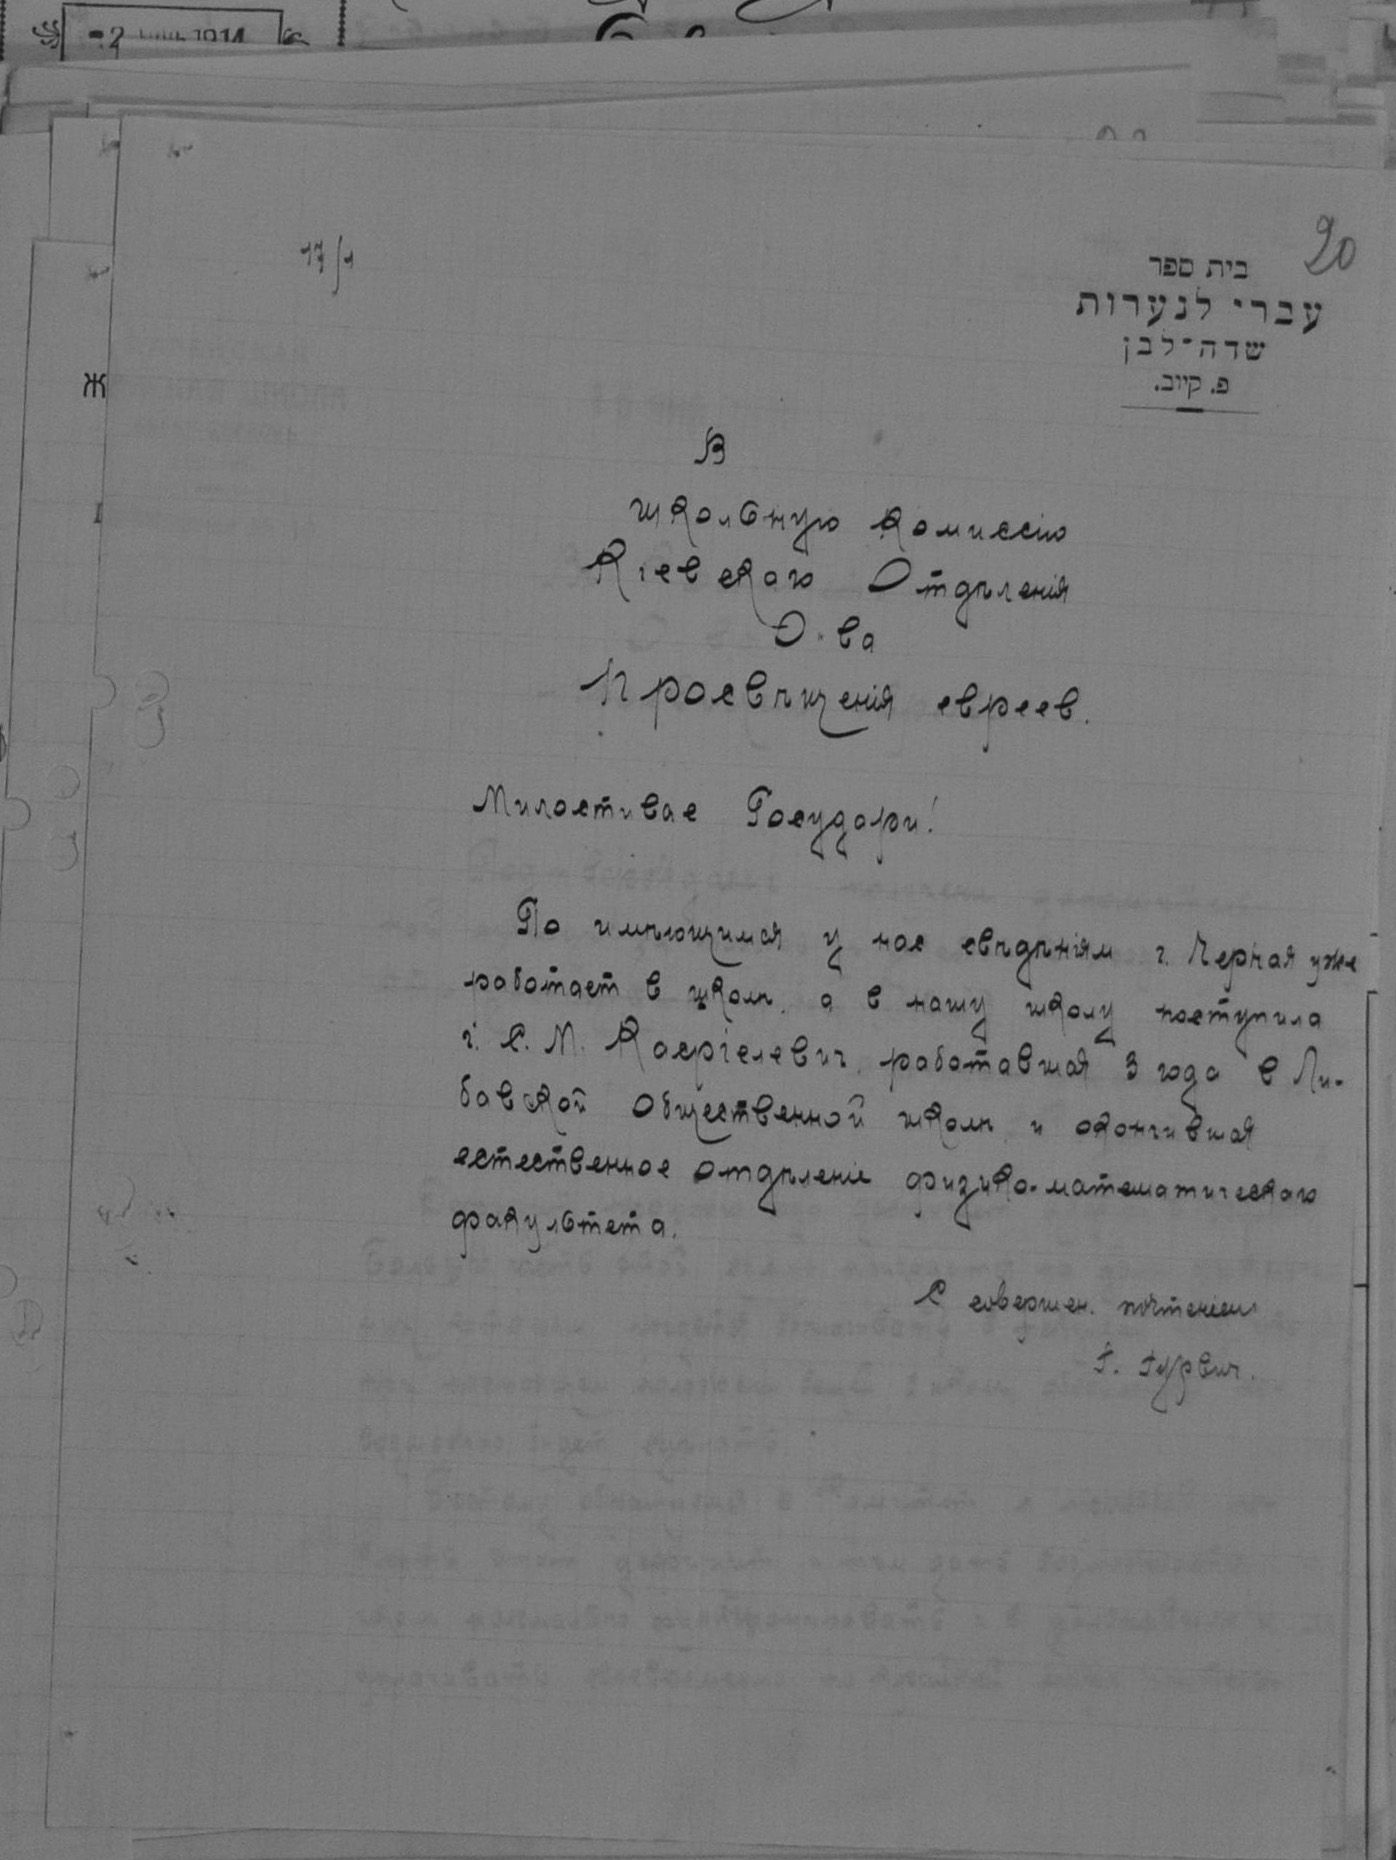 20
17/1
בית ספר
עברי לנערות
שדה־לבן
פ. קיוב.
В
школьную комиссію
Кіевскаго Отдѣленія
О-ва
Просвѣщенія евреев.
Милостивае Государи!
По имѣющимся у нас свѣдѣніям г. Черная уже
работает в школѣ, а в нашу школу поступила
г. С. М. Касріелевич, работавшая 3 года в Ли-
бавской общественной школѣ и окончившая
естественное отдѣленіе физико-математическаго
факультета.
С совершен. почтеніем
Г. Гурвич.